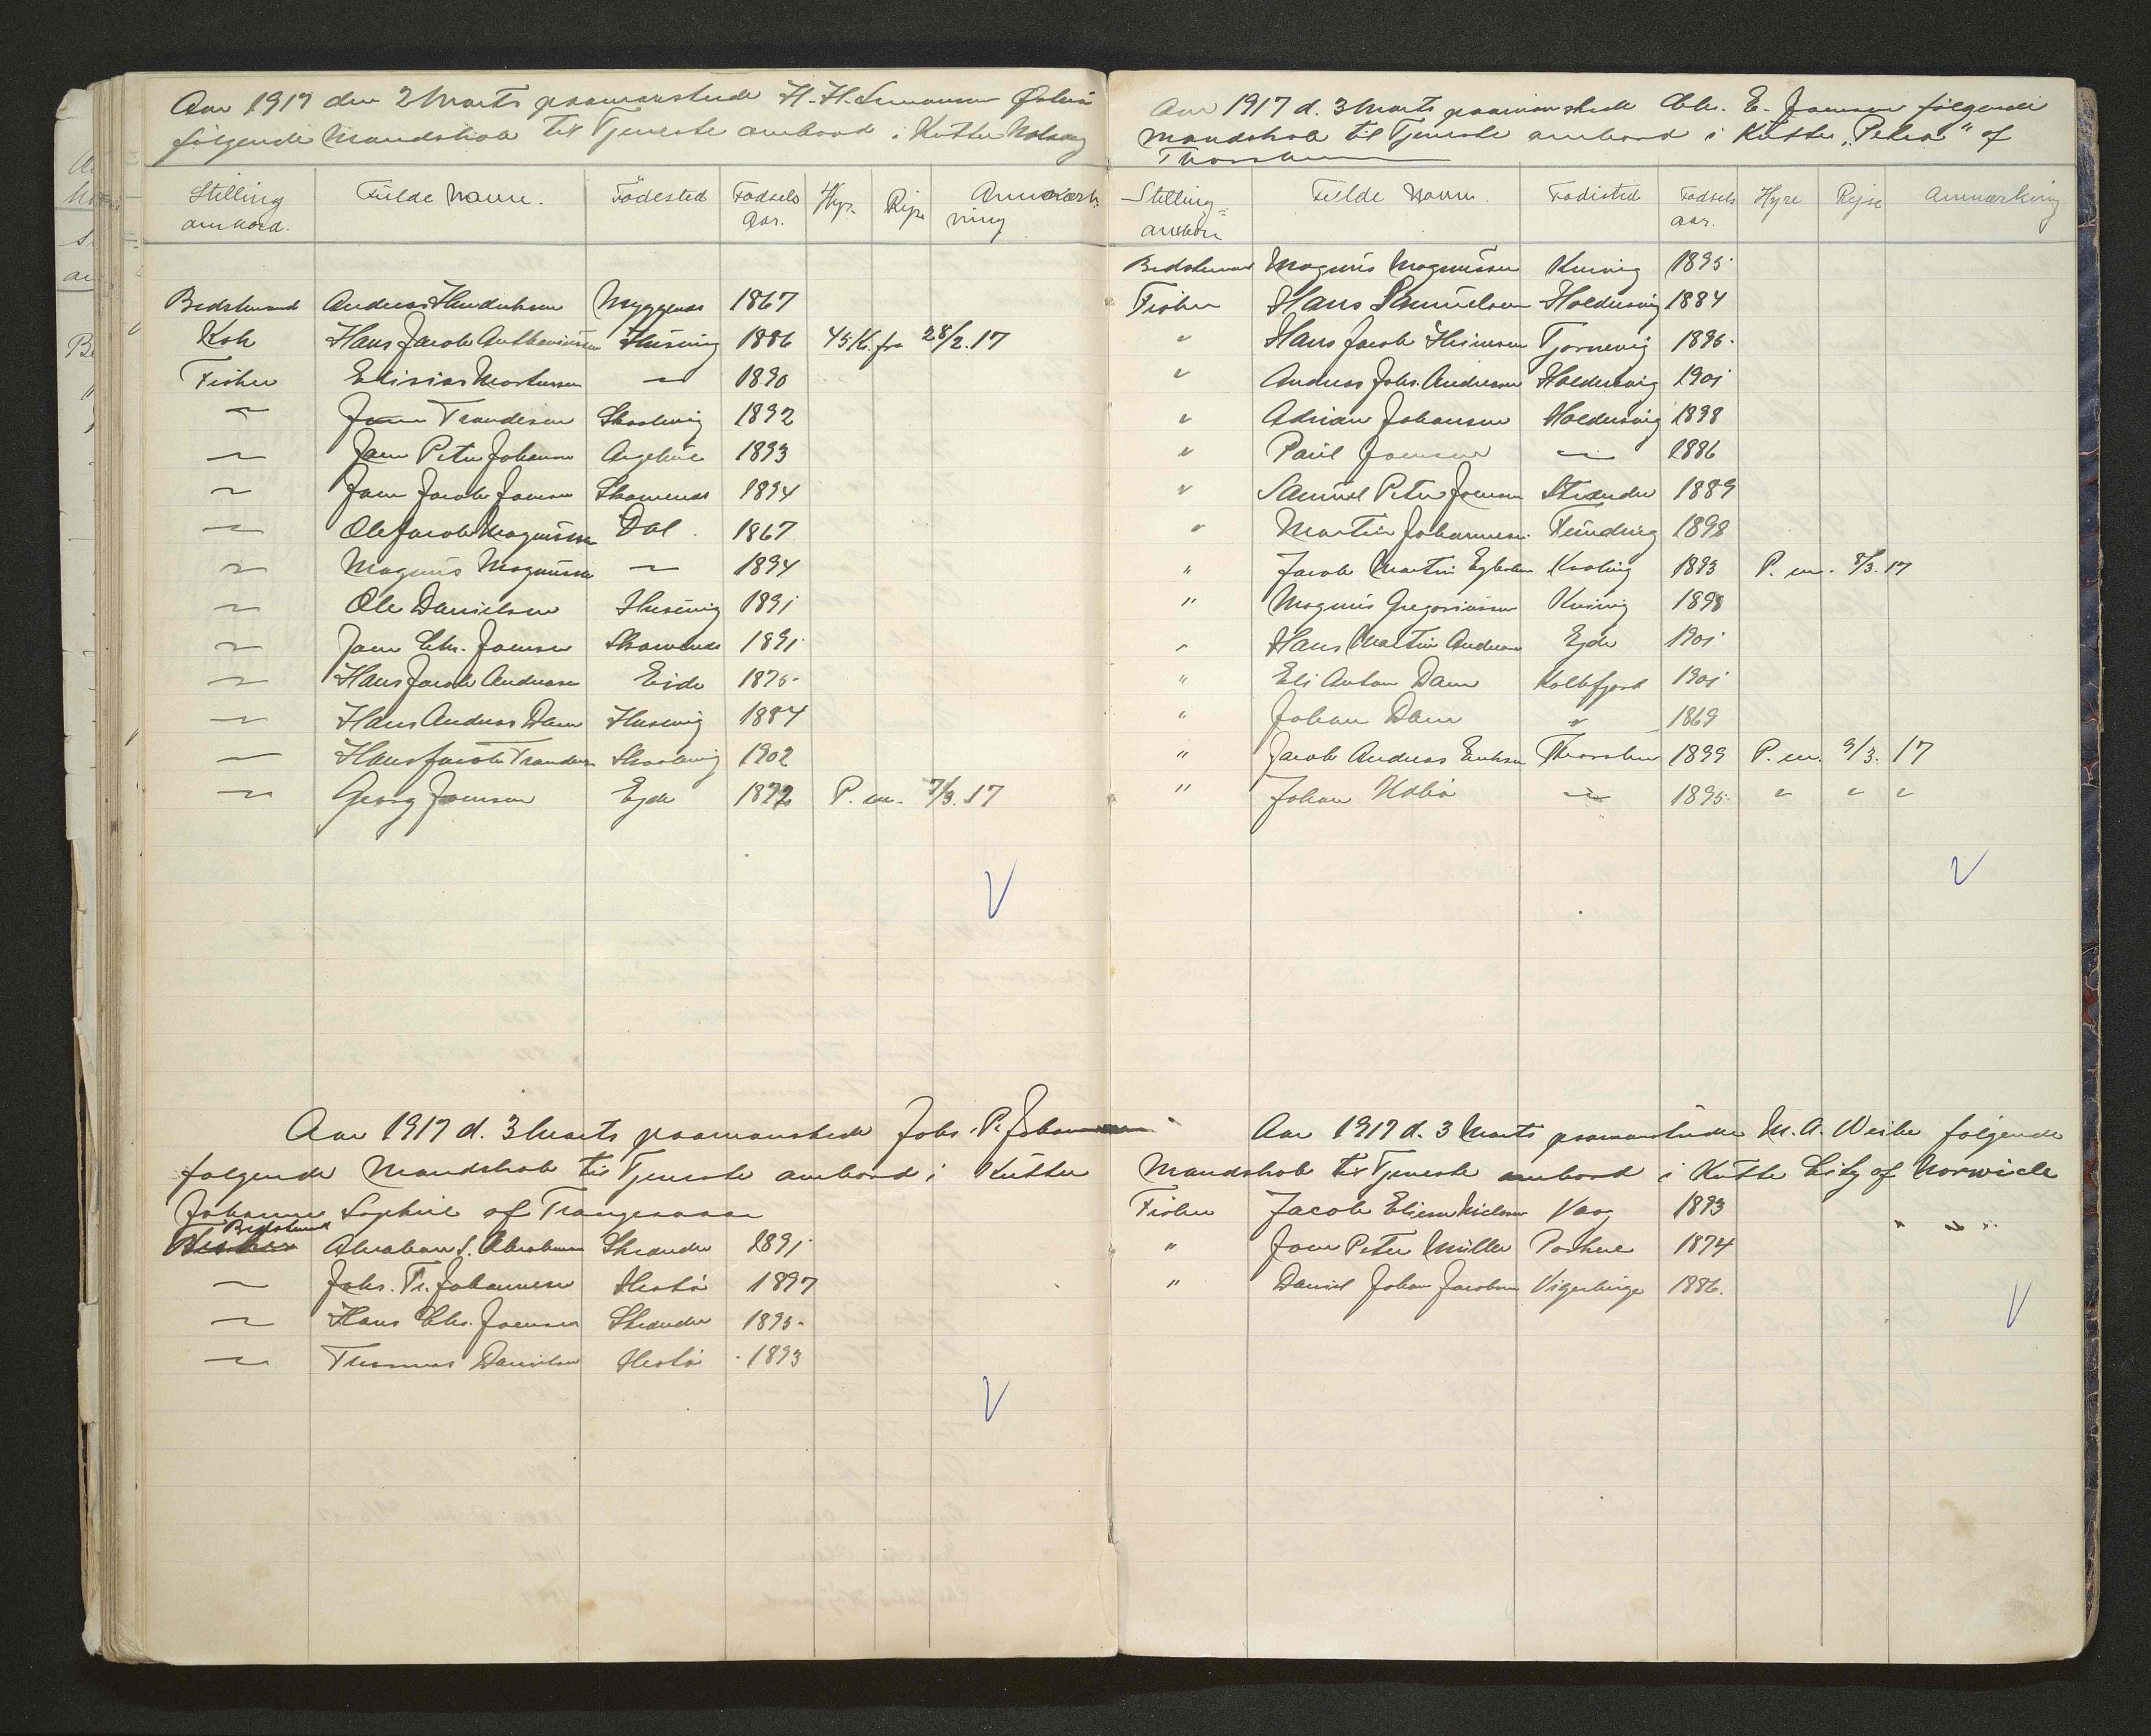 Aar 1917 den 2 Marts paamønstrede H. H. Simonsen Østerø
følgende Mandskab til Tjeneste ombord i Kutter Nolsoy
Stilling ombord. Fulde Navn. Fødested Fødsels Aar. Hyre Rejse Anmærkning
Bedstemand Andreas Hendriksen Myggenæs 1867
Kok Hans Jacob Anthoniussen Husevig 1886 45 K. fra 28/2.17
Fisker Elisias Mortensen — 1890
— Joen Trondesen Skaalevig 1892
— Joen Peter Johansen 1893
— Joen Jacob Joensen Skopenæs 1894
— Ole Jacob Magnussen Dal 1867
— Magnus Magnussen — 1894
— Ole Danielsen Husevig 1891
— Joen Chr. Joensen 1891
— Hans Jacob Andreasen Eide 1875
— Hans Andreas Dam Husevig 1884
— Hans Jacob Trondesen Skaalevig 1902
— Georg Joensen Ejde 1892 P. m. 7/3.17
Aar 1917 d. 3 Marts paamønstrede Johs. P. Johannesen
følgende Mandskab til Tjeneste ombord i Kutter
Johanne Sophie af Trangesvaag
Bedstemand
Fisker Abraham S. Abrahamsen Strænder 1891
— Johs. Fr. Johannesen Hestø 1897
— Hans Chr. Joensen Strænder 1895
— Thomas Danielsen Hestø 1893
Aar 1917 d. 3 Marts paamønstrede Chr. E. Joensen følgende
Mandskab til Tjeneste ombord i Kutter „Petra" af
Thorshavn
Stilling ombord Fulde Navn. Fødested Fødsels aar. Hyre Rejse Anmærkning
Bedstemand Magnus Magnussen Kvivig 1895
Fisker Hans Samuelsen Haldersvig 1884
" Hans Jacob Heinesen Tjørnevig 1895
" Andreas Johs. Andreasen Haldersvig 1901
" Adrian Johansen Haldersvig 1898
" Paul Joensen — 1886
" Samuel Peter Joensen Strænder 1889
" Martin Johannesen Funding 1898
" Jacob Martin Egholm Kvalvig 1893 P. m. 8/3.17
" Magnus Gregoriussen Kvivig 1898
" Hans Martin Andreasen Ejde 1901
" Eli Anton Dam Kolbfjord 1901
" Johan Dam " 1869
" Jacob Andreas Eriksen Thorshavn 1899 P. m. 9/3. 17
" Johan — 1895 " " "
Aar 1917 d. 3 Marts paamønstrede M. A. Weihe følgende
Mandskab til Tjeneste ombord i Kutter City of Norwich
Fisker Jacob Elisar Nielsen Vaag 1893
" Joen Peter Müller Porkere 1874
" Daniel Johan Jacobsen Vigerbirge 1886.